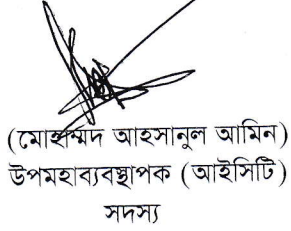 (মোহাম্মদ আহসানুল আমিন)
উপমহাব্যবস্থাপক (আইসিটি)
সদস্য